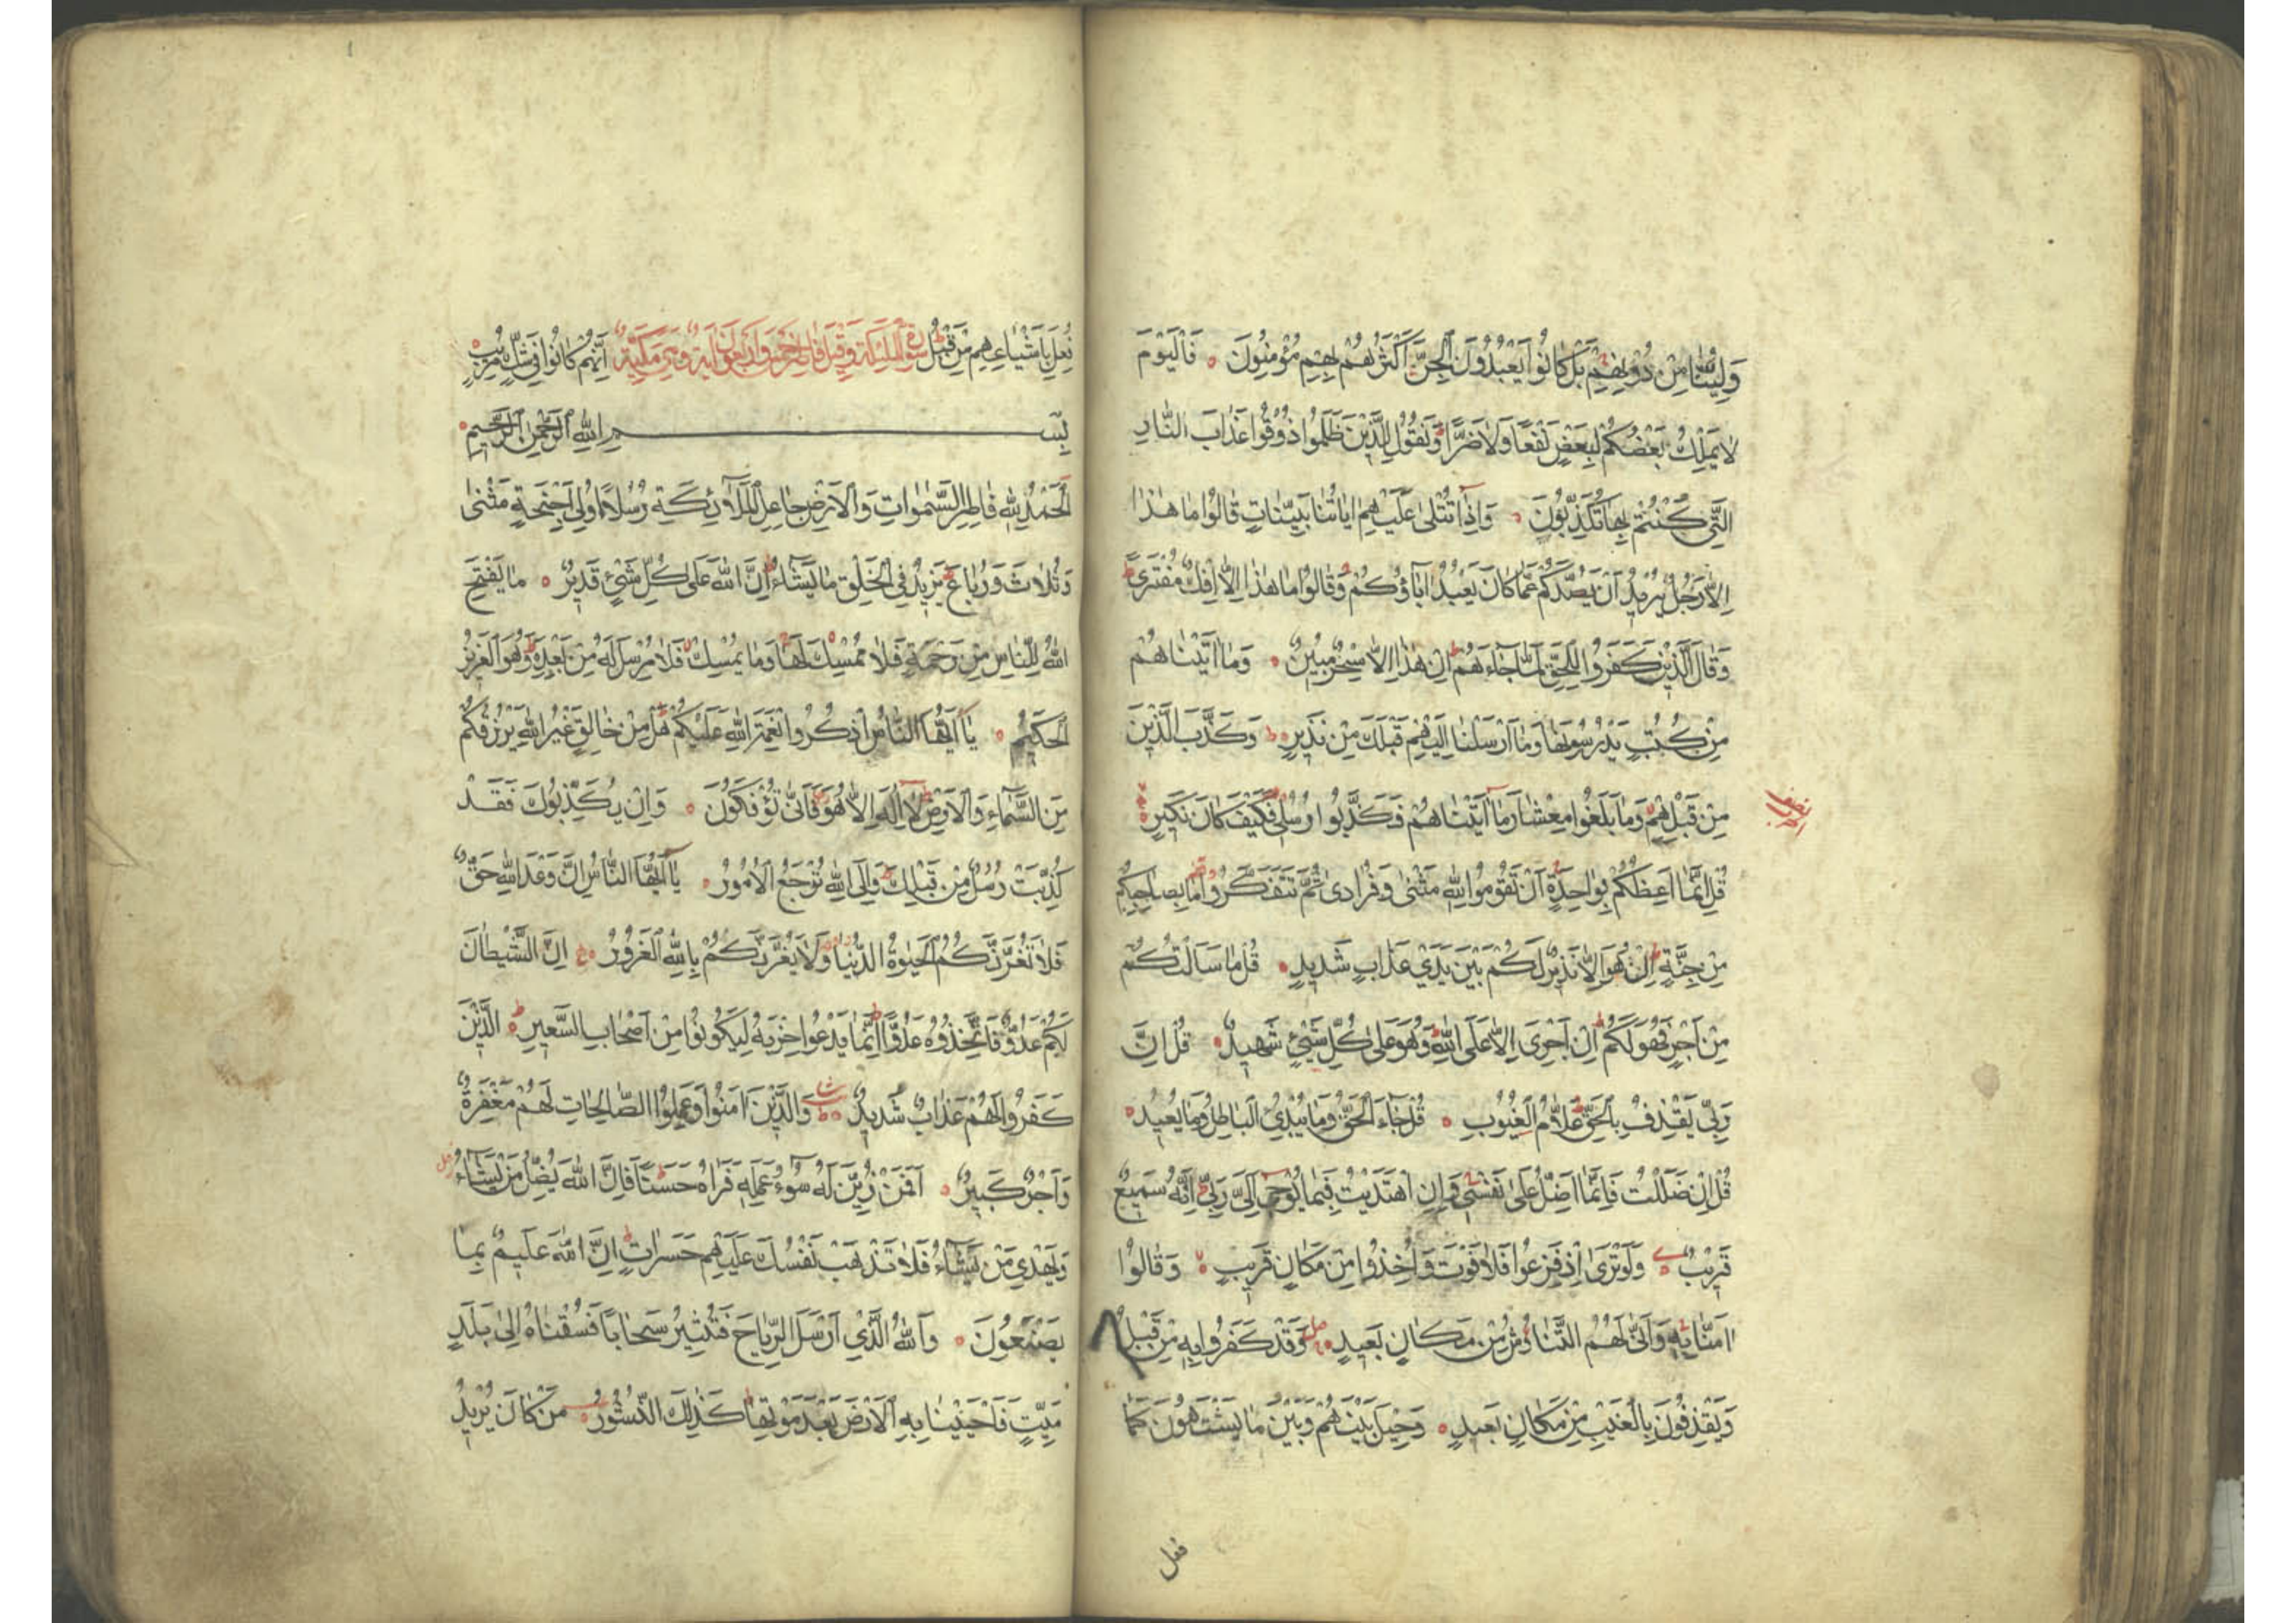 وَلِيُّنَا مِنْ دُونِهِمْ بَلْ كَانُوا يَعْبُدُونَ الْجِنَّ اَكْثَرُهُمْ بِهِمْ مُؤْمِنُونَ فَالْيَوْمَ
لَا يَمْلِكُ بَعْضُكُمْ لِبَعْضٍ نَفْعًا وَلَا ضَرًّا وَنَقُولُ لِلَّذِينَ ظَلَمُوا ذُوقُوا عَذَابَ النَّارِ
الَّتِي كُنْتُمْ بِهَا تُكَذِّبُونَ وَاِذَا تُتْلٰى عَلَيْهِمْ اٰيَاتُنَا بَيِّنَاتٍ قَالُوا مَا هٰذَا
اِلَّا رَجُلٌ يُرِيدُ اَنْ يَصُدَّكُمْ عَمَّا كَانَ يَعْبُدُ اٰبَاؤُكُمْ وَقَالُوا مَا هٰذَا اِلَّا اِفْكٌ مُفْتَرًى
وَقَالَ الَّذِينَ كَفَرُوا لِلْحَقِّ لَمَّا جَاءَهُمْ اِنْ هٰذَا اِلَّا سِحْرٌ مُبِينٌ وَمَا اٰتَيْنَاهُمْ
مِنْ كُتُبٍ يَدْرُسُونَهَا وَمَا اَرْسَلْنَا اِلَيْهِمْ قَبْلَكَ مِنْ نَذِيرٍ وَكَذَّبَ الَّذِينَ
مِنْ قَبْلِهِمْ وَمَا بَلَغُوا مِعْشَارَ مَا اٰتَيْنَاهُمْ فَكَذَّبُوا رُسُلِي فَكَيْفَ كَانَ نَكِيرِ
قُلْ اِنَّمَا اَعِظُكُمْ بِوَاحِدَةٍ اَنْ تَقُومُوا لِلّٰهِ مَثْنٰى وَفُرَادٰى ثُمَّ تَتَفَكَّرُوا مَا بِصَاحِبِكُمْ
مِنْ جِنَّةٍ اِنْ هُوَ اِلَّا نَذِيرٌ لَكُمْ بَيْنَ يَدَيْ عَذَابٍ شَدِيدٍ قُلْ مَا سَاَلْتُكُمْ
مِنْ اَجْرٍ فَهُوَ لَكُمْ اِنْ اَجْرِيَ اِلَّا عَلَى اللّٰهِ وَهُوَ عَلٰى كُلِّ شَيْءٍ شَهِيدٌ قُلْ اِنَّ
رَبِّي يَقْذِفُ بِالْحَقِّ عَلَّامُ الْغُيُوبِ قُلْ جَاءَ الْحَقُّ وَمَا يُبْدِئُ الْبَاطِلُ وَمَا يُعِيدُ
قُلْ اِنْ ضَلَلْتُ فَاِنَّمَا اَضِلُّ عَلٰى نَفْسِي وَاِنِ اهْتَدَيْتُ فَبِمَا يُوحِي اِلَيَّ رَبِّي اِنَّهُ سَمِيعٌ
قَرِيبٌ وَلَوْ تَرٰى اِذْ فَزِعُوا فَلَا فَوْتَ وَاُخِذُوا مِنْ مَكَانٍ قَرِيبٍ وَقَالُوا
اٰمَنَّا بِهِ وَاَنّٰى لَهُمُ التَّنَاوُشُ مِنْ مَكَانٍ بَعِيدٍ وَقَدْ كَفَرُوا بِهِ مِنْ قَبْلُ
وَيَقْذِفُونَ بِالْغَيْبِ مِنْ مَكَانٍ بَعِيدٍ وَحِيلَ بَيْنَهُمْ وَبَيْنَ مَا يَشْتَهُونَ كَمَا
فعل
فُعِلَ بِاَشْيَاعِهِمْ مِنْ قَبْلُ سورة الملئكة وقيل فاطر خمس واربعون اية وهي مكية اِنَّهُمْ كَانُوا فِي شَكٍّ مُرِيبٍ
بِسْمِ اللّٰهِ الرَّحْمٰنِ الرَّحِيمِ
اَلْحَمْدُ لِلّٰهِ فَاطِرِ السَّمٰوَاتِ وَالْاَرْضِ جَاعِلِ الْمَلَائِكَةِ رُسُلًا اُولِي اَجْنِحَةٍ مَثْنٰى
وَثُلَاثَ وَرُبَاعَ يَزِيدُ فِي الْخَلْقِ مَا يَشَاءُ اِنَّ اللّٰهَ عَلٰى كُلِّ شَيْءٍ قَدِيرٌ مَا يَفْتَحِ
اللّٰهُ لِلنَّاسِ مِنْ رَحْمَةٍ فَلَا مُمْسِكَ لَهَا وَمَا يُمْسِكْ فَلَا مُرْسِلَ لَهُ مِنْ بَعْدِهِ وَهُوَ الْعَزِيزُ
الْحَكِيمُ يَا اَيُّهَا النَّاسُ اذْكُرُوا نِعْمَةَ اللّٰهِ عَلَيْكُمْ هَلْ مِنْ خَالِقٍ غَيْرُ اللّٰهِ يَرْزُقُكُمْ
مِنَ السَّمَاءِ وَالْاَرْضِ لَا اِلٰهَ اِلَّا هُوَ فَاَنّٰى تُؤْفَكُونَ وَاِنْ يُكَذِّبُوكَ فَقَدْ
كُذِّبَتْ رُسُلٌ مِنْ قَبْلِكَ وَاِلَى اللّٰهِ تُرْجَعُ الْاُمُورُ يَا اَيُّهَا النَّاسُ اِنَّ وَعْدَ اللّٰهِ حَقٌّ
فَلَا تَغُرَّنَّكُمُ الْحَيٰوةُ الدُّنْيَا وَلَا يَغُرَّنَّكُمْ بِاللّٰهِ الْغَرُورُ اِنَّ الشَّيْطَانَ
لَكُمْ عَدُوٌّ فَاتَّخِذُوهُ عَدُوًّا اِنَّمَا يَدْعُوا حِزْبَهُ لِيَكُونُوا مِنْ اَصْحَابِ السَّعِيرِ اَلَّذِينَ
كَفَرُوا لَهُمْ عَذَابٌ شَدِيدٌ وَالَّذِينَ اٰمَنُوا وَعَمِلُوا الصَّالِحَاتِ لَهُمْ مَغْفِرَةٌ
وَاَجْرٌ كَبِيرٌ اَفَمَنْ زُيِّنَ لَهُ سُوءُ عَمَلِهِ فَرَاٰهُ حَسَنًا فَاِنَّ اللّٰهَ يُضِلُّ مَنْ يَشَاءُ
وَيَهْدِي مَنْ يَشَاءُ فَلَا تَذْهَبْ نَفْسُكَ عَلَيْهِمْ حَسَرَاتٍ اِنَّ اللّٰهَ عَلِيمٌ بِمَا
يَصْنَعُونَ وَاللّٰهُ الَّذِي اَرْسَلَ الرِّيَاحَ فَتُثِيرُ سَحَابًا فَسُقْنَاهُ اِلٰى بَلَدٍ
مَيِّتٍ فَاَحْيَيْنَا بِهِ الْاَرْضَ بَعْدَ مَوْتِهَا كَذٰلِكَ النُّشُورُ مَنْ كَانَ يُرِيدُ